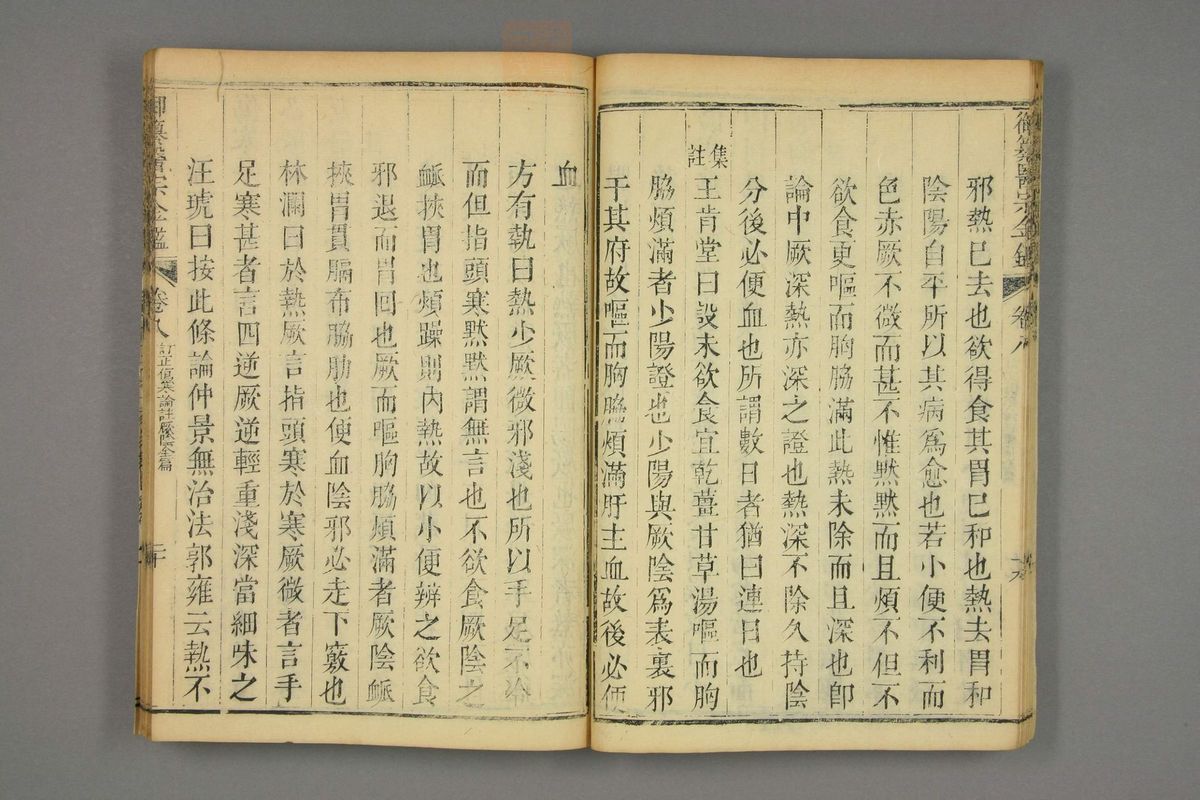 御纂醫宗金鑑 卷八
邪熱已去也欲得食其胃已和也熱去胃和
陰陽自平所以其病爲愈也若小便不利而
色赤厥不微而甚不惟默默而且煩不但不
欲食更嘔而胸脇滿此熱未除而且深也卽
論中厥深熱亦深之證也熱深不除久持陰
分後必便血也所謂數日者猶曰連日也
集註
王肯堂曰設未欲食宜乾薑甘草湯嘔而胸
脇煩滿者少陽證也少陽與厥陰爲表裏邪
干其府故嘔而胸脇煩滿肝主血故後必便
血
方有執曰熱少厥微邪淺也所以手足不冷
而但指頭寒默默謂無言也不欲食厥陰之
脈挾胃也煩躁則內熱故以小便辨之欲食
邪退而胃回也厥而嘔胸脇煩滿者厥陰脈
挾胃貫膈布脇肋也便血陰邪必走下竅也
林瀾曰於熱厥言指頭寒於寒厥微者言手
足寒甚者言四逆厥逆輕重淺深當細味之
汪琥曰按此條論仲景無治法郭雍云熱不
御纂醫宗金鑑 卷八 訂正傷寒論註厥陰全篇